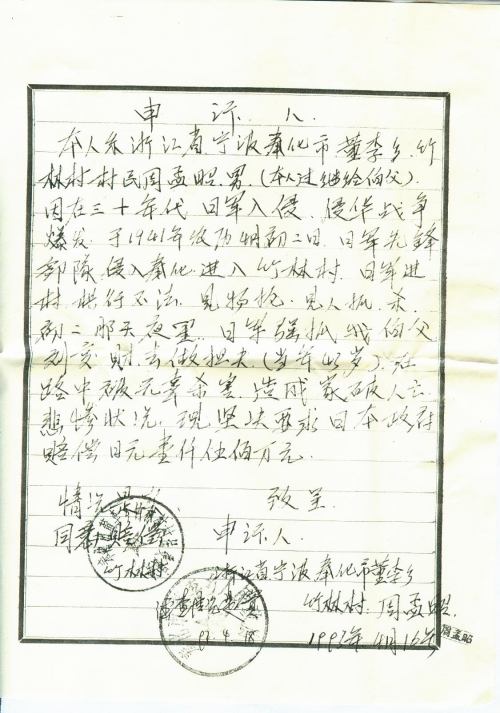 申 诉 人.
本人系浙江省宁波奉化市董李乡.竹
林村村民周孟昭.男.(本人过继给伯父).
因在三十年代日军入侵.侵华战争
爆发.于1941年农历4月初二日.日军先锋
部队侵入奉化.进入竹林村.日军进
村.横行不法.见物抢.见人抓.杀.
初二那天夜里.日军强抓我伯父
周 财去做担夫(当年43岁).在
路中被无辜杀害.造成家破人亡.
悲惨状况.现坚决要求日本政府
赔偿日元壹仟伍佰万元.
情况 致呈.
同意赔偿 申诉人.
竹林村 浙江省宁波奉化市董李乡
竹林村.周孟昭.
4.18 1993年4月16号
周孟昭